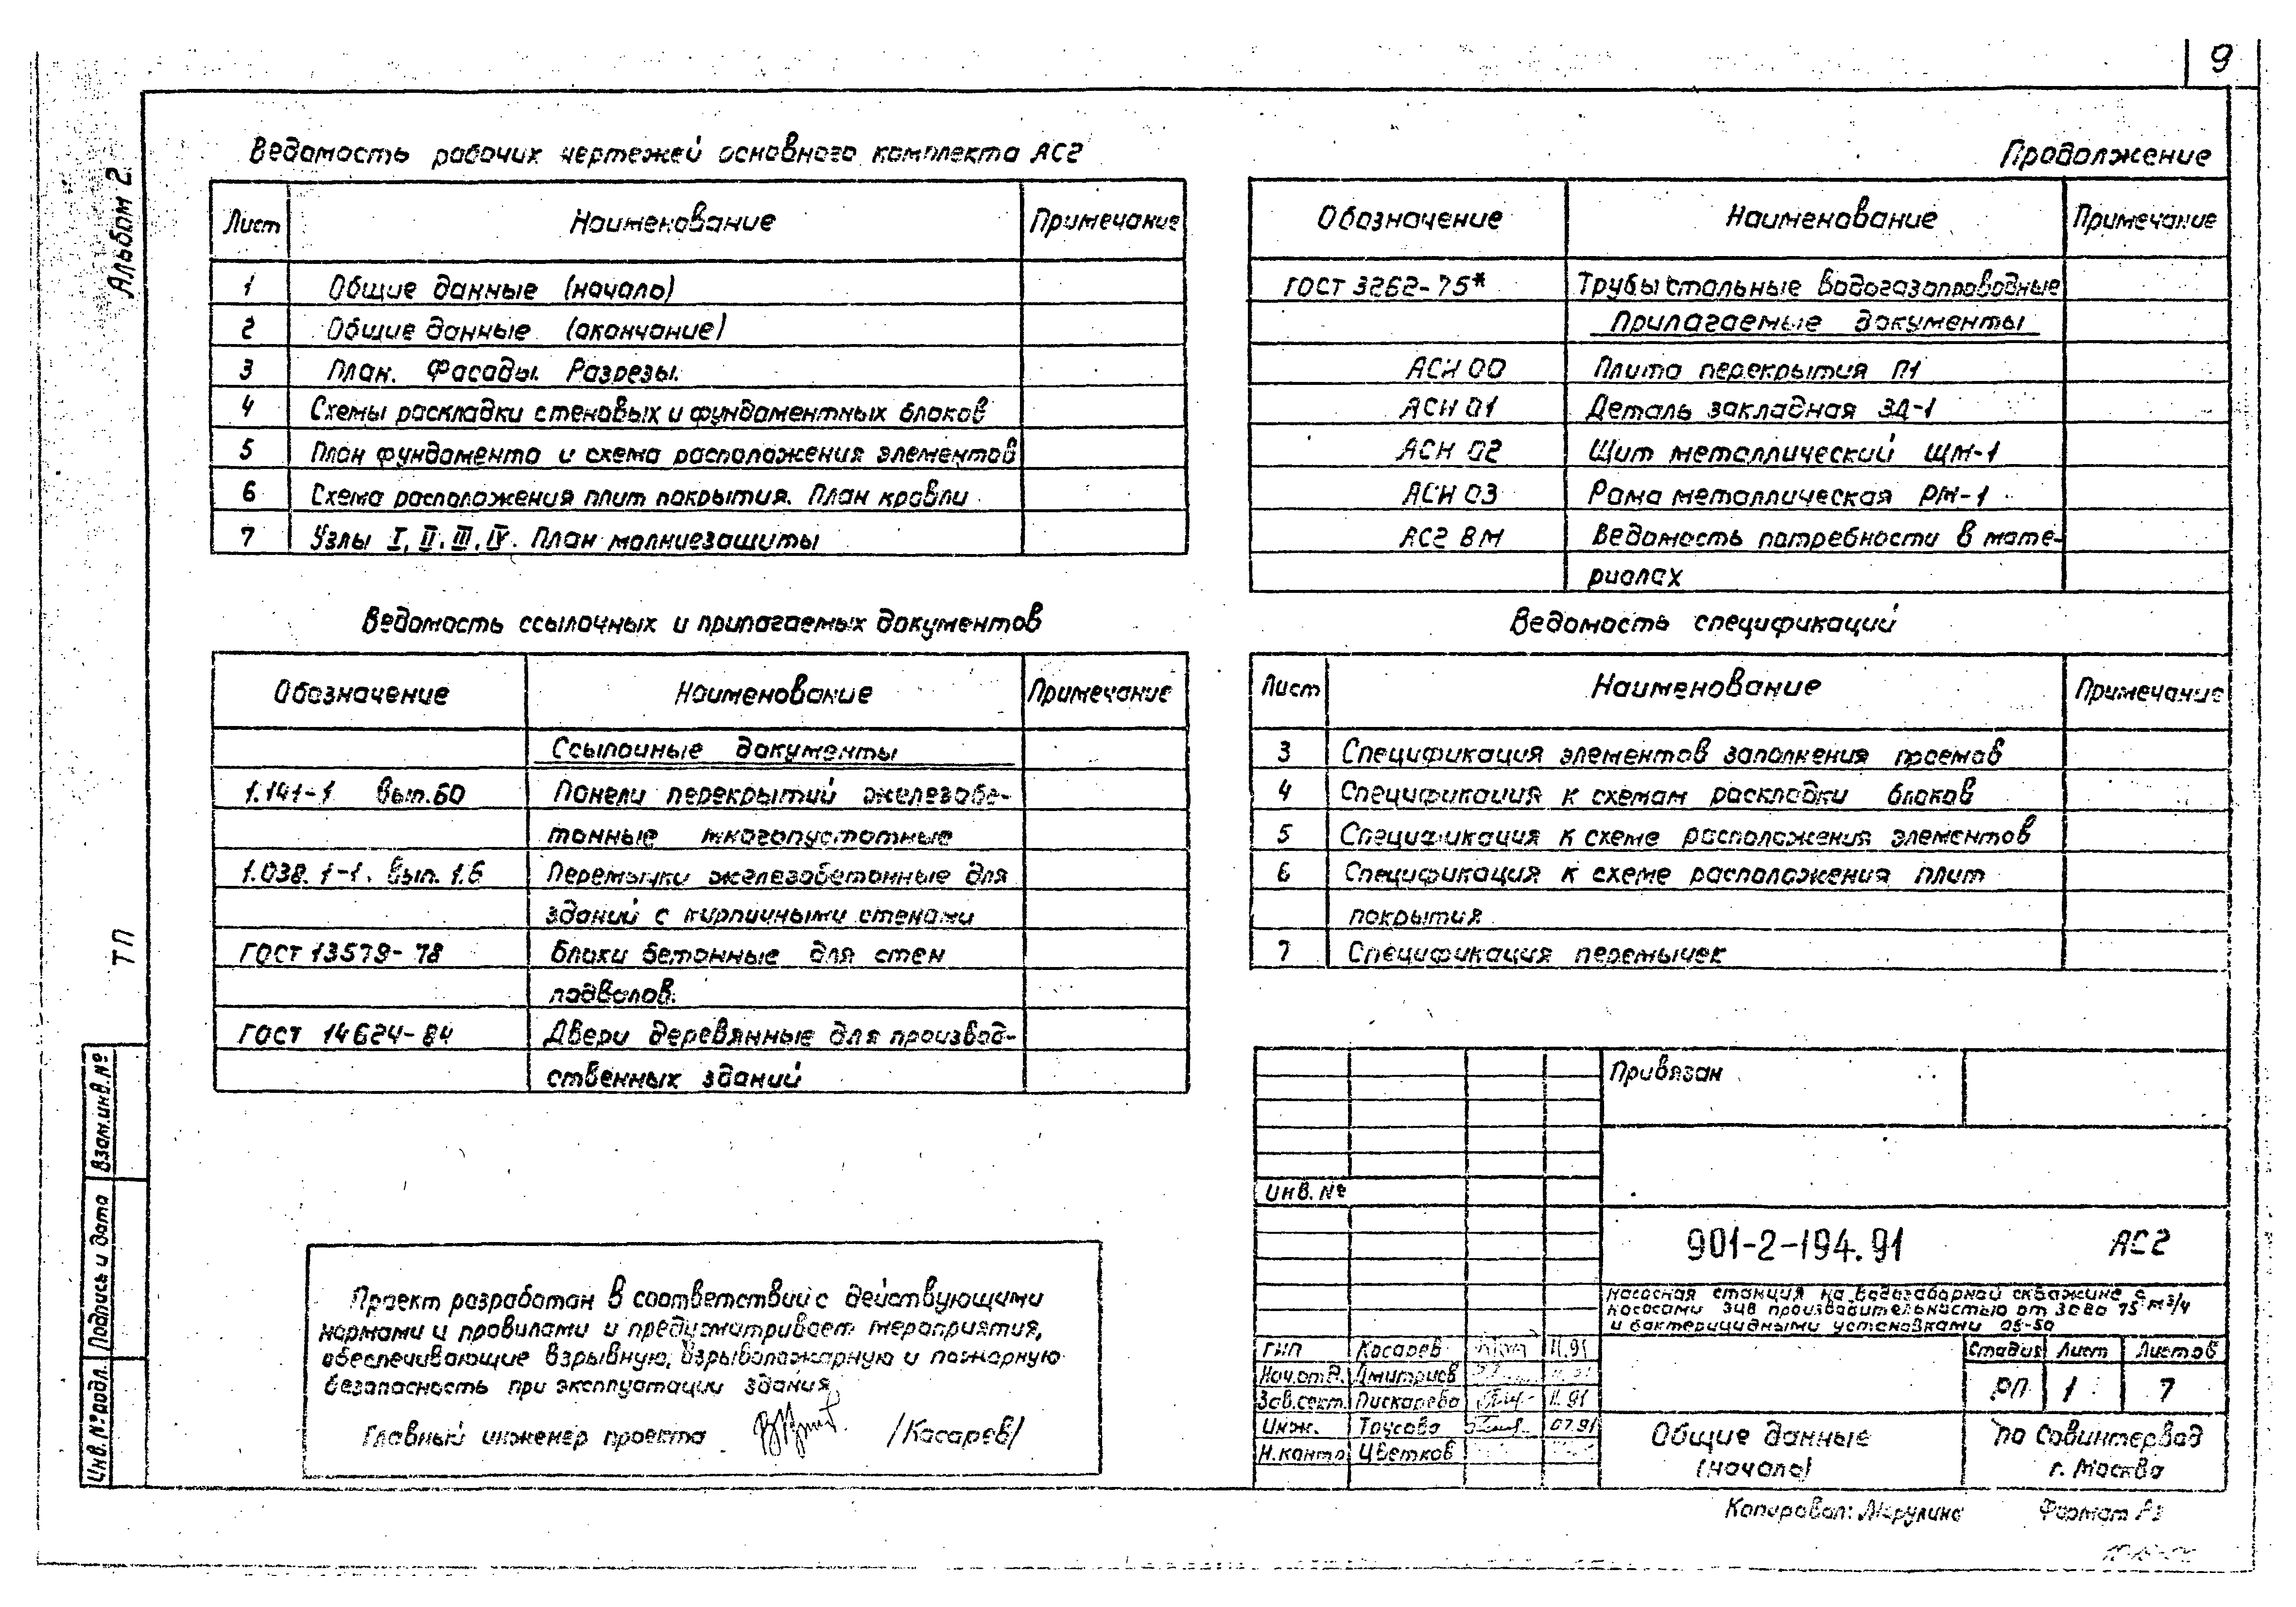 9
Альбом 2.
ТП
Ведомость рабочих чертежей основного комплекта АС2
Лист Наименование Примечание
1 Общие данные (начало)
2 Общие данные (окончание)
3 План. Фасады. Разрезы.
4 Схемы раскладки стеновых и фундаментных блоков
5 План фундамента и схема расположения элементов
6 Схема расположения плит покрытия. План кровли
7 Узлы I, II, III, IV. План молниезащиты
Ведомость ссылочных и прилагаемых документов
Обозначение Наименование Примечание
Ссылочные документы
1.141-1 вып.60 Панели перекрытий железобе-
тонные многопустотные
1.038.1-1. вып. 1.6 Перемычки железобетонные для
зданий с кирпичными стенами
ГОСТ 13579-78 Блоки бетонные для стен
подвалов.
ГОСТ 14624-84 Двери деревянные для производ-
ственных зданий
Проект разработан в соответствии с действующими
нормами и правилами и предусматривает мероприятия,
обеспечивающие взрывную, взрывопожарную и пожарную
безопасность при эксплуатации здания
Главный инженер проекта /Косарев/
Продолжение
Обозначение Наименование Примечание
ГОСТ 3262-75* Трубы стальные водогазопроводные
Прилагаемые документы
АСИ 00 Плита перекрытия П1
АСИ 01 Деталь закладная ЗД-1
АСИ 02 Щит металлический ЩМ-1
АСИ 03 Рама металлическая РМ-1
АС2 ВМ Ведомость потребности в мате-
риалах
Ведомость спецификаций
Лист Наименование Примечание
3 Спецификация элементов заполнения проемов
4 Спецификация к схемам раскладки блоков
5 Спецификация к схеме расположения элементов
6 Спецификация к схеме расположения плит
покрытия
7 Спецификация перемычек
Привязан
Инв. №
901-2-194.91 АС2
Насосная станция на водозаборной скважине с
насосами ЭЦВ производительностью от 30 до 75 м3/ч
и бактерицидными установками ОБ-50
ГИП Косарев 11.91
Нач.отд. Дмитриев
Зав.сект. Пискарева 11.91
Инж. Трусова 07.91
Н.контр. Цветков
Стадия Лист Листов
РП 1 7
Общие данные
(начало)
ПО Совинтервод
г. Москва
Взам.инв.№
Подпись и дата
Инв. № подл.
Копировал: Марулина Формат А3